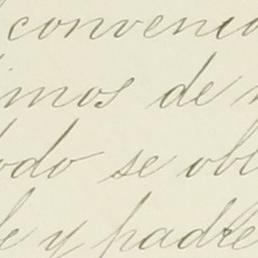 convenio
imos de
odo se obl
le y padre